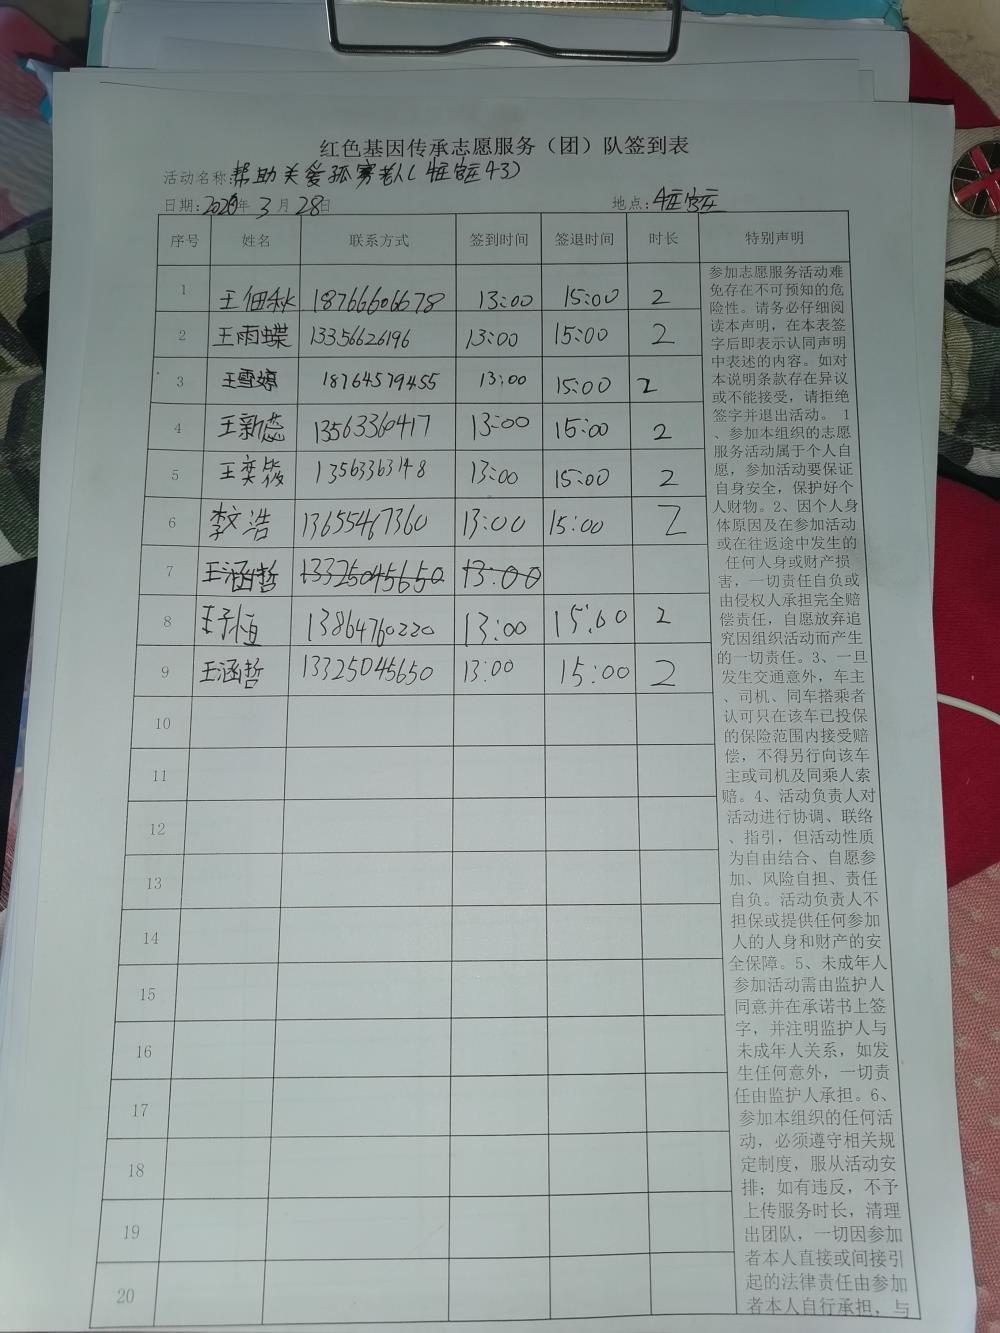 红色基因传承志愿服务（团）队签到表
活动名称:帮助关爱孤寡老人(
日期:2020年 3 月 28日 地点:
序号 姓名 联系方式 签到时间 签退时间 时长 特别声明
1 王佃秋 18766606678 13:00 15:00 2
2 王雨蝶 13356626196 13:00 15:00 2
3 王雪婷 18764579455 13:00 15:00 2
4 王新蕊 13563360417 13:00 15:00 2
5 王奕 13:00 15:00 2
6 李文浩 13655467360 13:00 15:00 2
7 王涵哲 13325045650 13:00
8 王子恒 13864760220 13:00 15:00 2
9 王涵哲 13325045650 13:00 15:00 2
10
11
12
13
14
15
16
17
18
19
20
参加志愿服务活动难
免存在不可预知的危
险性。请务必仔细阅
读本声明，在本表签
字后即表示认同声明
中表述的内容。如对
本说明条款存在异议
或不能接受，请拒绝
签字并退出活动。 1
、参加本组织的志愿
服务活动属于个人自
愿，参加活动要保证
自身安全，保护好个
人财物。2、因个人身
体原因及在参加活动
或在往返途中发生的
任何人身或财产损
害，一切责任自负或
由侵权人承担完全赔
偿责任，自愿放弃追
究因组织活动而产生
的一切责任。3、一旦
发生交通意外，车主
、司机、同车搭乘者
认可只在该车已投保
的保险范围内接受赔
偿，不得另行向该车
主或司机及同乘人索
赔。4、活动负责人对
活动进行协调、联络
、指引，但活动性质
为自由结合、自愿参
加、风险自担、责任
自负。活动负责人不
担保或提供任何参加
人的人身和财产的安
全保障。5、未成年人
参加活动需由监护人
同意并在承诺书上签
字，并注明监护人与
未成年人关系，如发
生任何意外，一切责
任由监护人承担。6、
参加本组织的任何活
动，必须遵守相关规
定制度，服从活动安
排；如有违反，不予
上传服务时长，清理
出团队，一切因参加
者本人直接或间接引
起的法律责任由参加
者本人自行承担，与